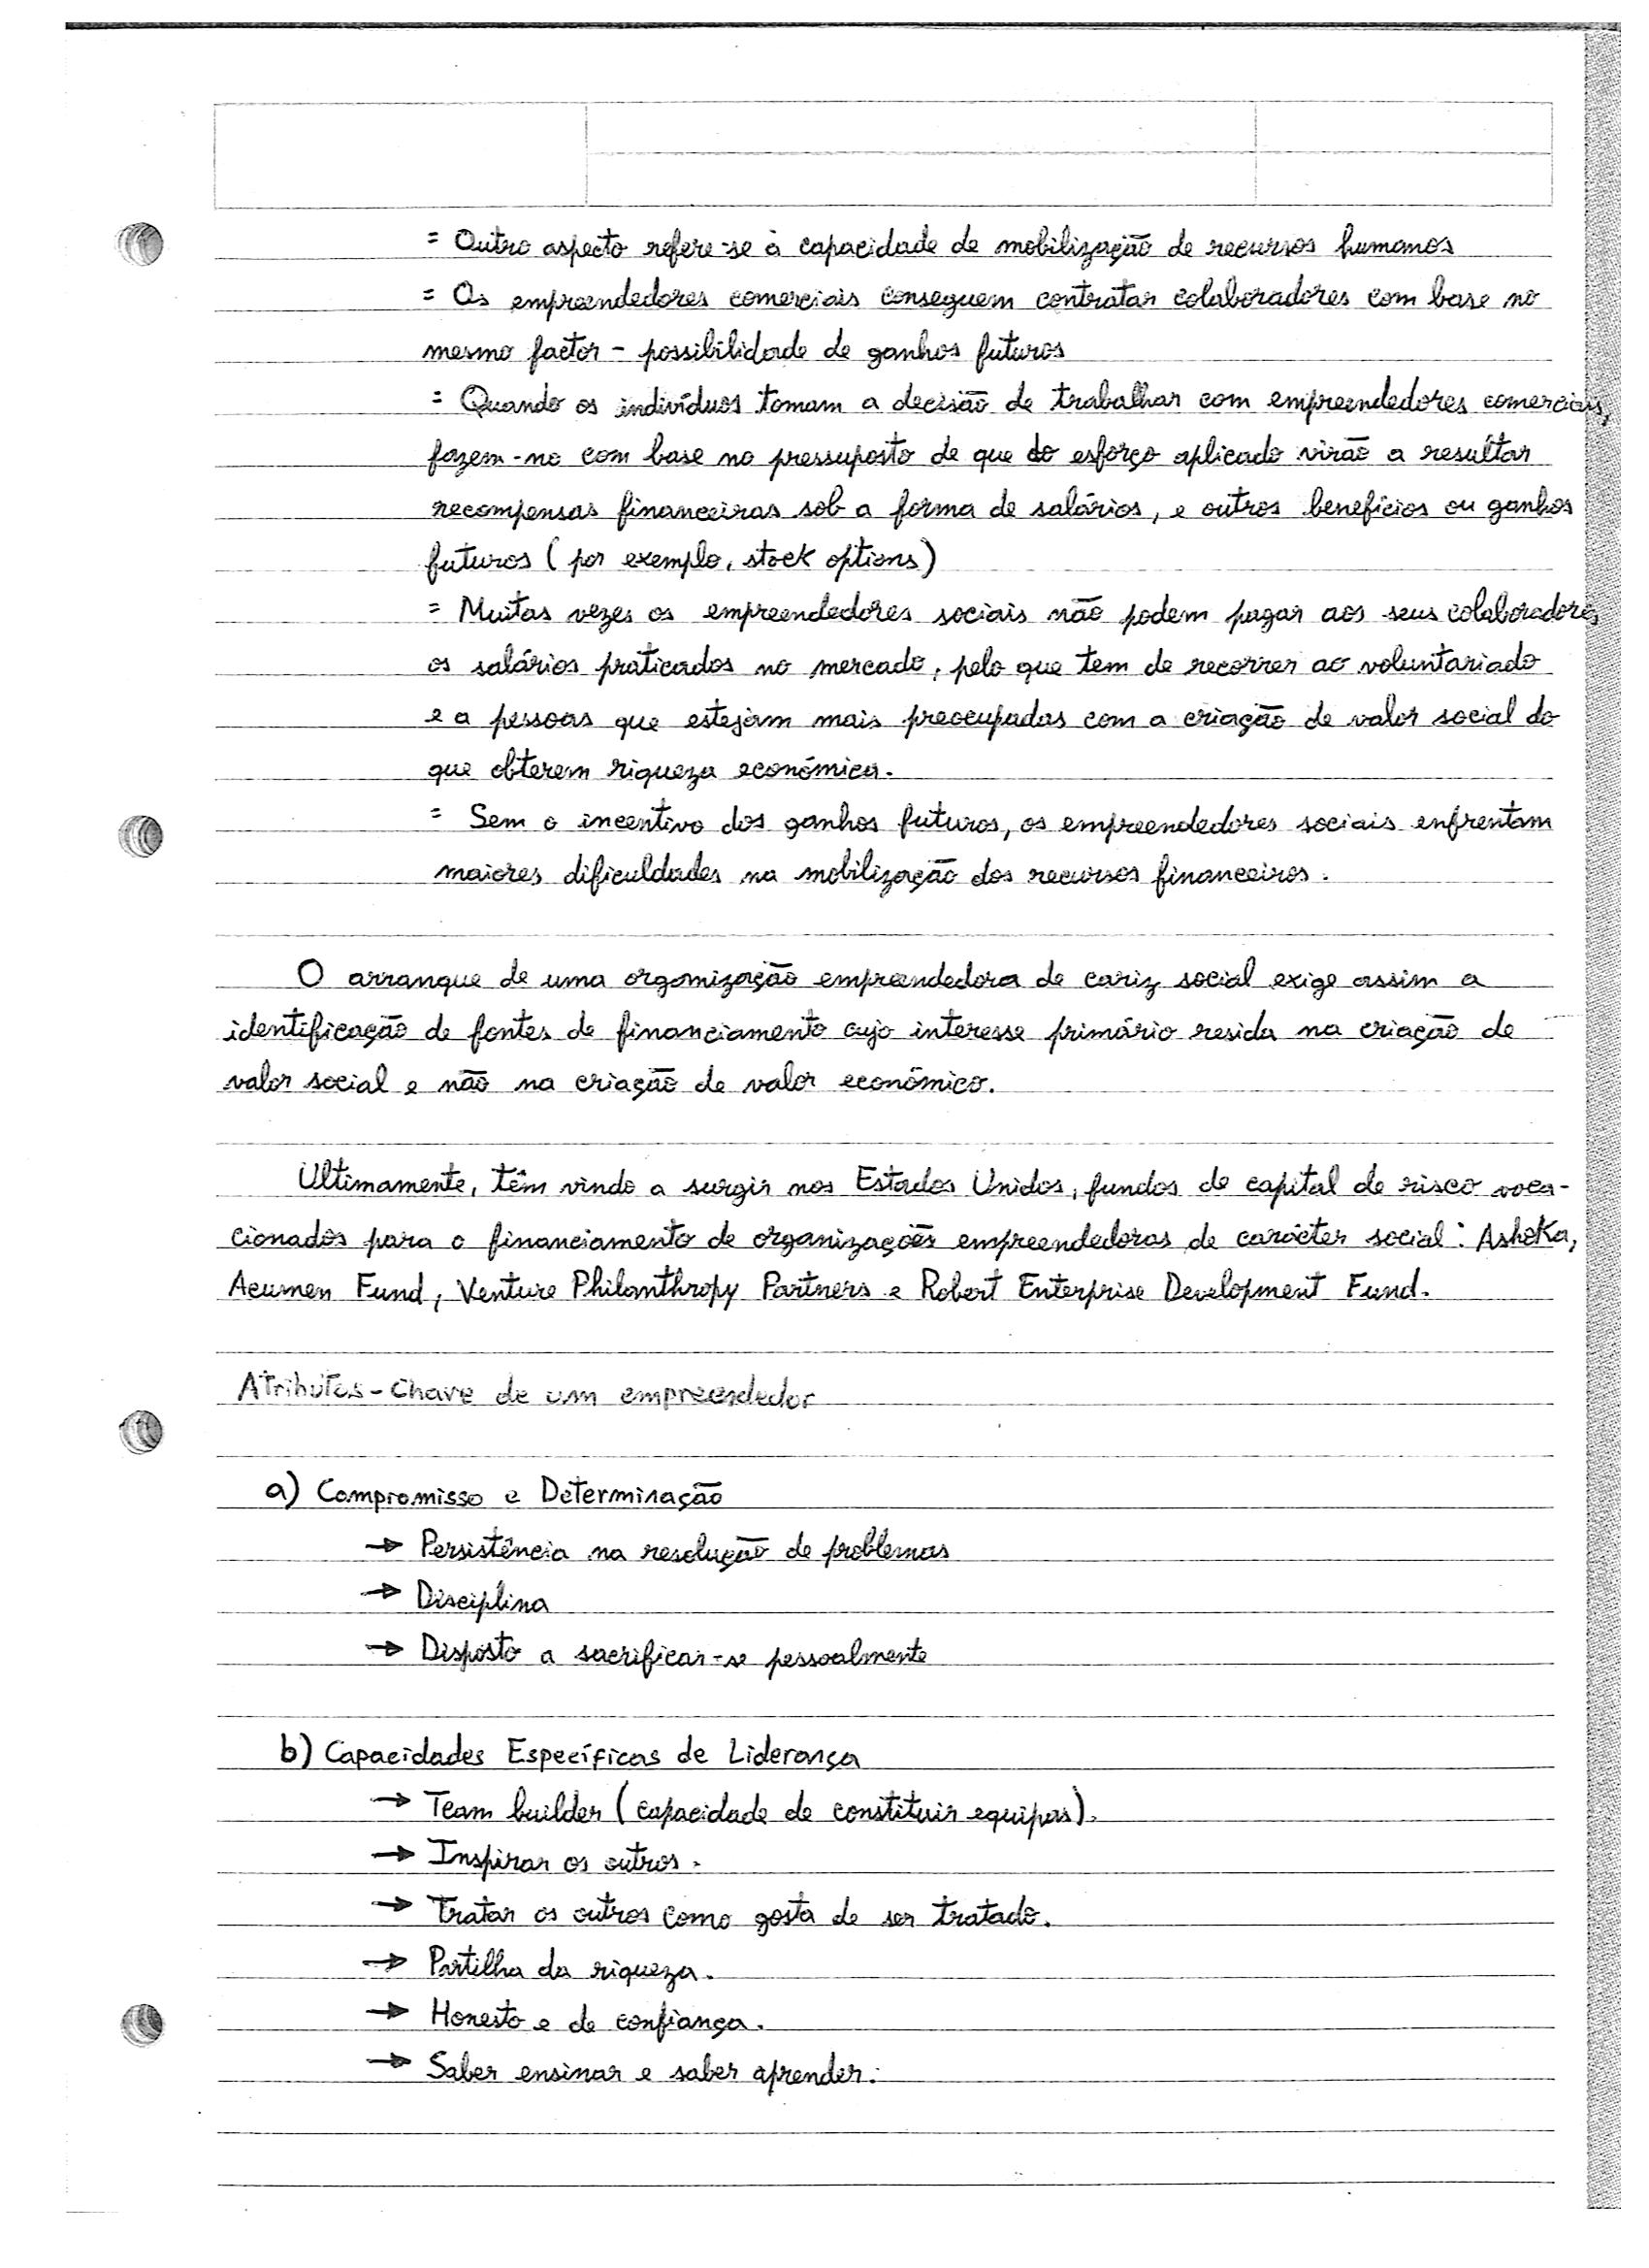 = Outro aspecto refere-se à capacidade de mobilização de recursos humanos
= Os empreendedores comerciais conseguem contratar colaboradores com base no
mesmo factor - possibilidade de ganhos futuros
= Quando os indivíduos tomam a decisão de trabalhar com empreendedores comerciais,
fazem-no com base no pressuposto de que do esforço aplicado virão a resultar
recompensas financeiras sob a forma de salários, e outros benefícios ou ganhos
futuros (por exemplo, stock options)
= Muitas vezes os empreendedores sociais não podem pagar aos seus colaboradores
os salários praticados no mercado, pelo que tem de recorrer ao voluntariado
e a pessoas que estejam mais preocupadas com a criação de valor social do
que obterem riqueza económica.
= Sem o incentivo dos ganhos futuros, os empreendedores sociais enfrentam
maiores dificuldades na mobilização dos recursos financeiros.
O arranque de uma organização empreendedora de cariz social exige assim a
identificação de fontes de financiamento cujo interesse primário resida na criação de
valor social e não na criação de valor económico.
Ultimamente, têm vindo a surgir nos Estados Unidos, fundos de capital de risco voca-
cionados para o financiamento de organizações empreendedoras de carácter social: Ashoka,
Acumen Fund, Venture Philanthropy Partners e Robert Enterprise Development Fund.
Atributos-Chave de um empreendedor
a) Compromisso e Determinação
→ Persistência na resolução de problemas
→ Disciplina
→ Disposto a sacrificar-se pessoalmente
b) Capacidades Específicas de Liderança
→ Team builder (capacidade de constituir equipas).
→ Inspirar os outros.
→ Tratar os outros como gosta de ser tratado.
→ Partilha da riqueza.
→ Honesto e de confiança.
→ Saber ensinar e saber aprender.